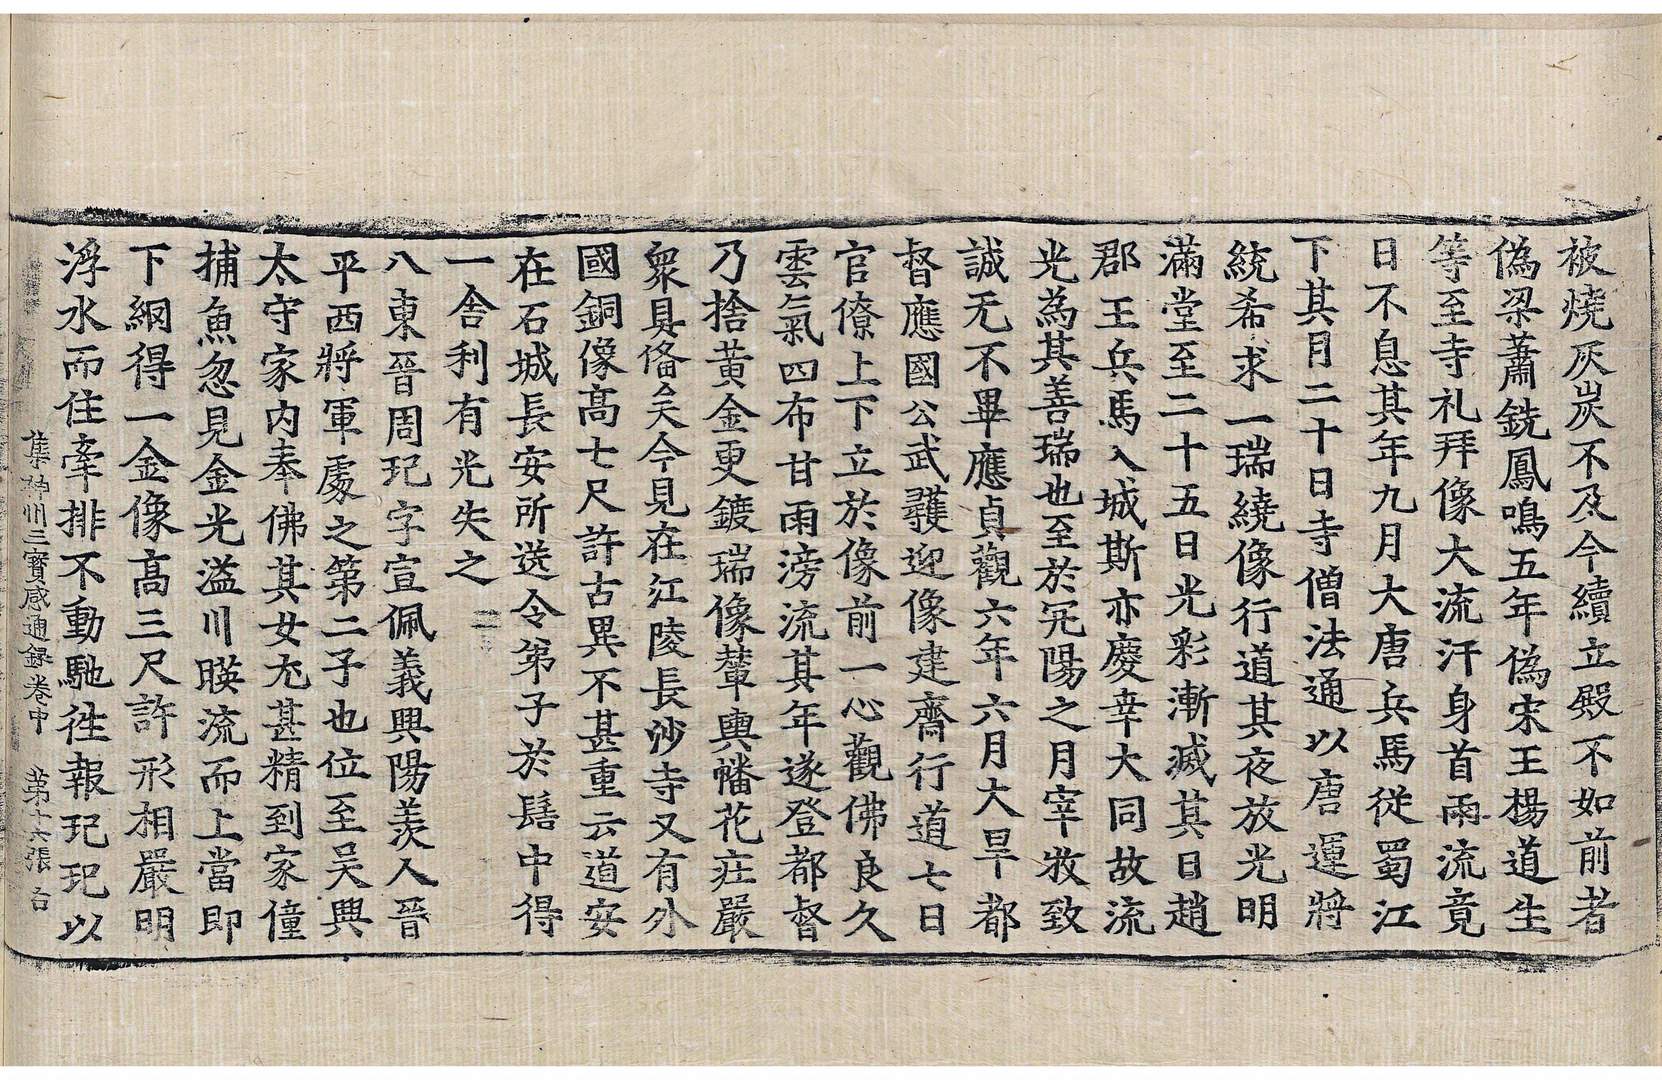 被燒灰炭不及今續立殿不如前者
偽梁蕭銑鳳鳴五年偽宋王楊道生
等至寺礼拜像大流汗身首雨流竟
日不息其年九月大唐兵馬從蜀江
下其月二十日寺僧法通以唐運將
統希求一瑞繞像行道其夜放光明
滿堂至二十五日光彩漸滅其日趙
郡王兵馬入城斯亦慶幸大同故流
光為其善瑞也至於冗陽之月宰牧致
誠无不畢應貞觀六年六月大旱都
督應國公武彠迎像建齋行道七日
官僚上下立於像前一心觀佛良久
雲氣四布甘雨滂流其年遂登都督
乃捨黃金更鍍瑞像輦輿幡花莊嚴
衆具俻矣今見在江陵長沙寺又有外
國銅像高七尺許古異不甚重云道安
在石城長安所送令弟子於髻中得
一舍利有光失之
八東晉周玘字宣佩義興陽羨人晉
平西將軍處之第二子也位至吳興
太守家內奉佛其女尤甚精到家僮
捕魚忽見金光溢川暎流而上當即
下網得一金像高三尺許形相嚴明
浮水而住牽排不動馳徃報玘玘以
集神州三寶感通録卷中 第十六張 台